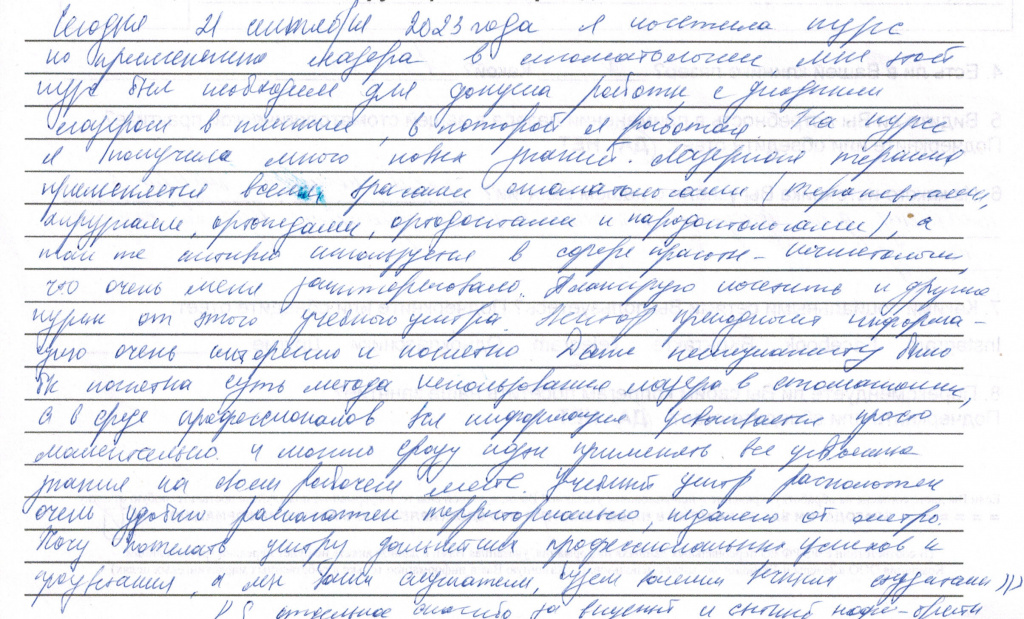 Сегодня 21 сентября 2023 года я посетила курс
по применению лазера в стоматологии мне этот
курс был необходим для допуска работы с диодным
лазером в клинике, в которой я работаю. На курсе
я получила много новых знаний. Лазерная терапия
применяется всеми врачами стоматологами (терапевтами,
хирургами, ортопедами, ортодонтами и пародонтологами), а
так же активно используется в сфере красоты - косметологии,
что очень меня заинтересовало. Планирую посетить и другие
курсы от этого учебного центра. Лектор преподносил информа-
цию очень интересно и понятно Даже неспециалисту было
бы понятна суть метода использования лазера в стоматологии,
а в среде профессионалов вся информация усваивается просто
моментально. и можно сразу идти применять все усвоенные
знания на своем рабочем месте. Учебный центр расположен
очень удобно расположен территориально, недалеко от метро.
Хочу пожелать центру дальнейших профессиональных успехов и
процветания, а мы ваши слушатели, будем вечными студентами )))
P.S отдельное спасибо за вкусный и сытный кофе-брейк
4. Есть ли в Вашей клинике лазер?